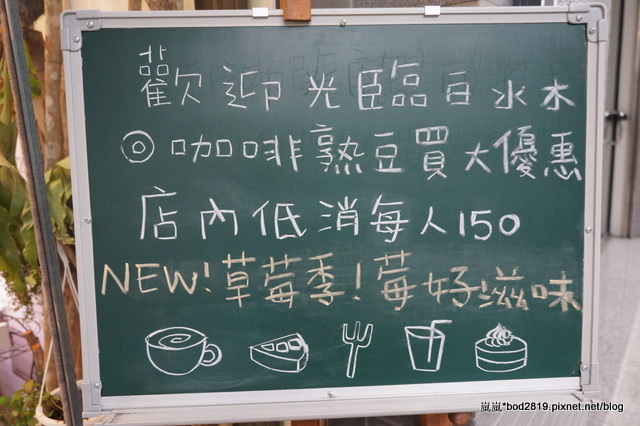 歡迎光臨白水木
◎咖啡熟豆買大優惠
店內低消每人150
NEW!草莓季!莓好滋味
嵐嵐*bod2819.pixnet.net/blog